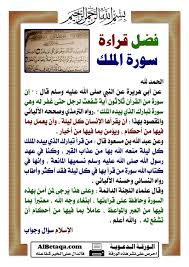 بسم الله الرحمن الرحيم
فضل قراءة
سورة الملك
الحمد لله
عن أبي هريرة عن النبي صلى الله عليه وسلم قال : « إن
سورة من القرآن ثلاثون آية شفعت لرجل حتى غفر له وهي
سورة تبارك الذي بيده الملك » . رواه الترمذي وصححه الألباني
والمقصود بهذا : أن يقرأها الإنسان كل ليلة ، وأن يعمل بما
فيها من أحكام ، ويؤمن بما فيها من أخبار .
وعن عبد الله بن مسعود قال : من قرأ تبارك الذي بيده الملك
كل ليلة منعه الله بها من عذاب القبر ، وكنا في عهد
رسول الله صلى الله عليه وسلم نسميها المانعة ، وإنها في
كتاب الله سورة من قرأ بها في كل ليلة فقد أكثر وأطاب
رواه النسائي وحسنه الألباني .
وقال علماء اللجنة الدائمة : وعلى هذا يرجى لمن آمن بهذه
السورة وحافظ على قراءتها ، ابتغاء وجه الله ، معتبراً بما
فيها من العبر والمواعظ ، عاملاً بما فيها من أحكام أن
تشفع له . والله أعلم .
الإسلام سؤال وجواب
الورقة الدعوية
AlBetaqa.com